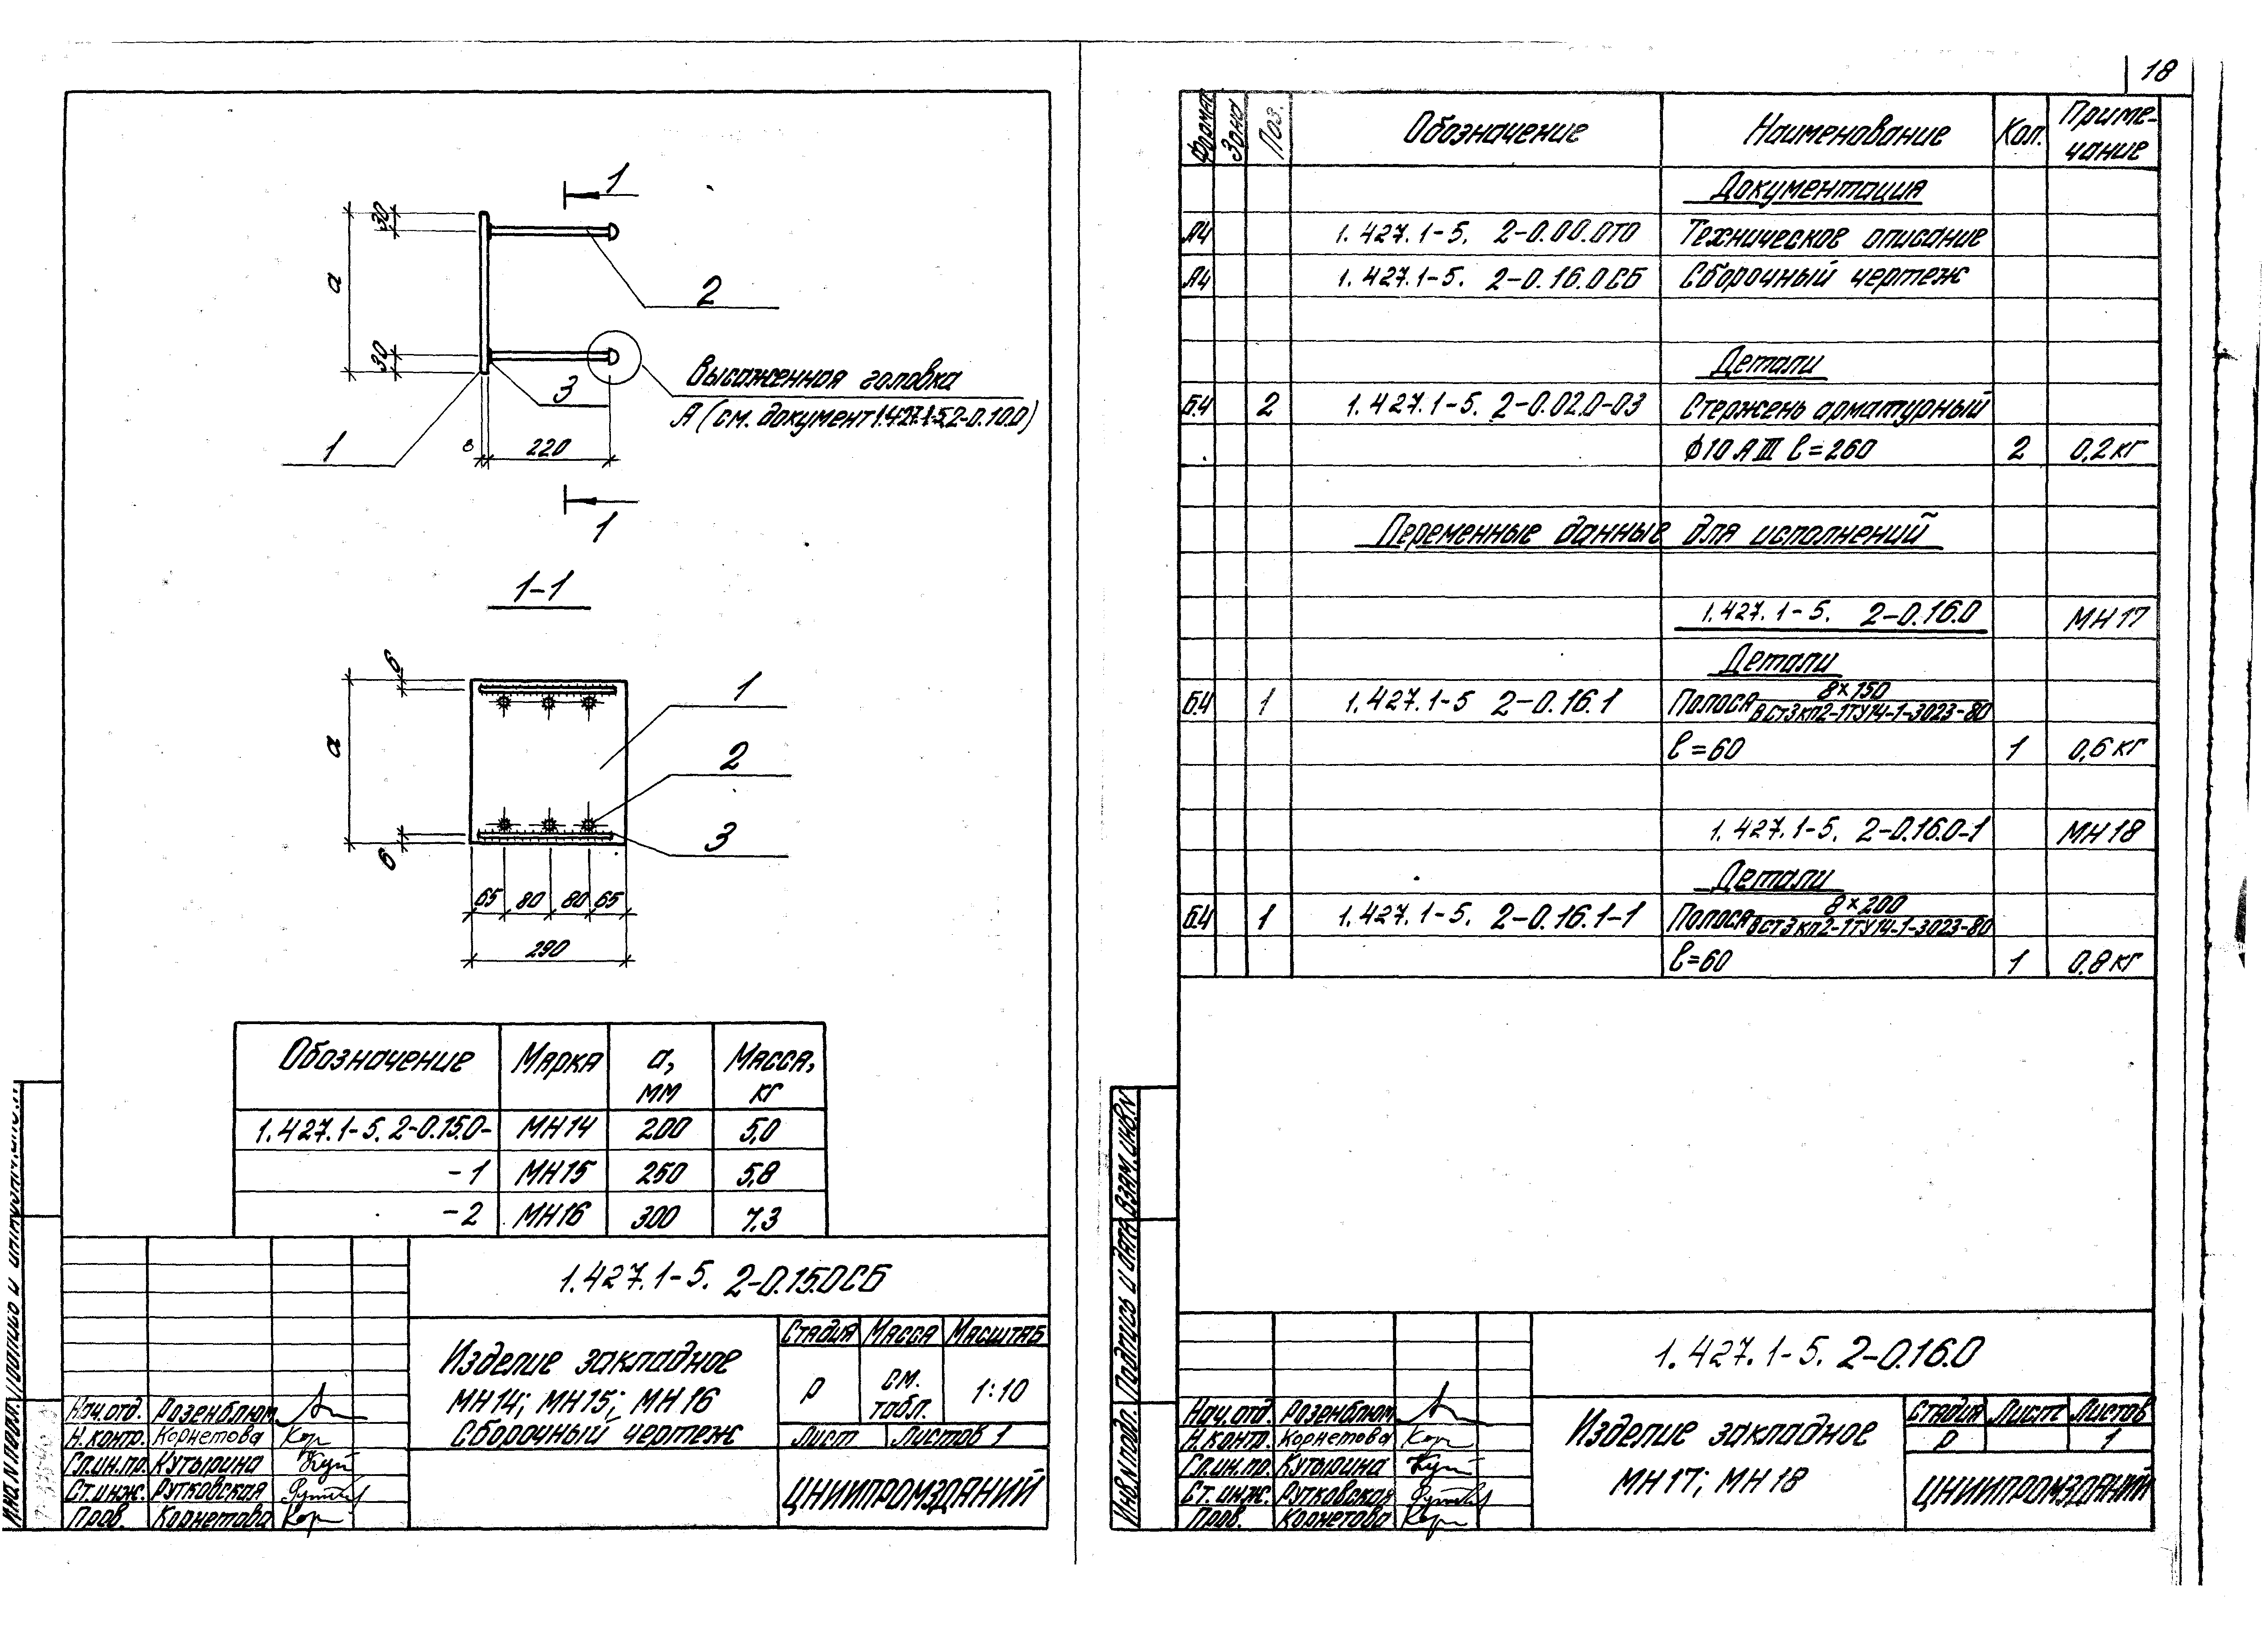 18
1
30
а
2
30
Высаженная головка
3
А (см. документ 1.427.1-5.2-0.10.0)
1
8
220
1
1-1
6
1
а
2
3
6
65 80 80 65
290
Обозначение Марка а, мм Масса, кг
1.427.1-5. 2-0.15.0- МН14 200 5,0
-1 МН15 250 5,8
-2 МН16 300 7,3
1.427.1-5. 2-0.15.0СБ
Изделие закладное
МН14; МН15; МН16
Сборочный чертеж
Стадия Масса Масштаб
Р см. табл. 1:10
Лист Листов 1
ЦНИИПРОМЗДАНИЙ
Нач.отд. Розенблюм
Н.контр. Корнетова Кор
Гл.ин.пр. Кутырина
Ст.инж. Рутковская
Пров. Корнетова Кор
Формат Зона Поз. Обозначение Наименование Кол. Приме-
чание
Документация
А4 1.427.1-5. 2-0.00.0ТО Техническое описание
А4 1.427.1-5. 2-0.16.0СБ Сборочный чертеж
Детали
Б.4 2 1.427.1-5. 2-0.02.0-03 Стержень арматурный
ф10 АIII l=260 2 0,2кг
Переменные данные для исполнений
1.427.1-5. 2-0.16.0 МН17
Детали
Б.4 1 1.427.1-5 2-0.16.1 Полоса 8×150
ВСТ3кп2-1ТУ14-1-3023-80
l=60 1 0,6 кг
1.427.1-5. 2-0.16.0-1 МН18
Детали
Б.4 1 1.427.1-5. 2-0.16.1-1 Полоса 8×200
ВСТ3кп2-1ТУ14-1-3023-80
l=60 1 0.8кг
Взам.инв.N
Подпись и дата
Инв.N подл.
1.427.1-5. 2-0.16.0
Изделие закладное
МН17; МН18
Стадия Лист Листов
Р 1
ЦНИИПРОМЗДАНИЙ
Нач.отд. Розенблюм
Н.контр. Корнетова Кор
Гл.ин.пр. Кутырина
Ст.инж. Рутковская
Пров. Корнетова Кор